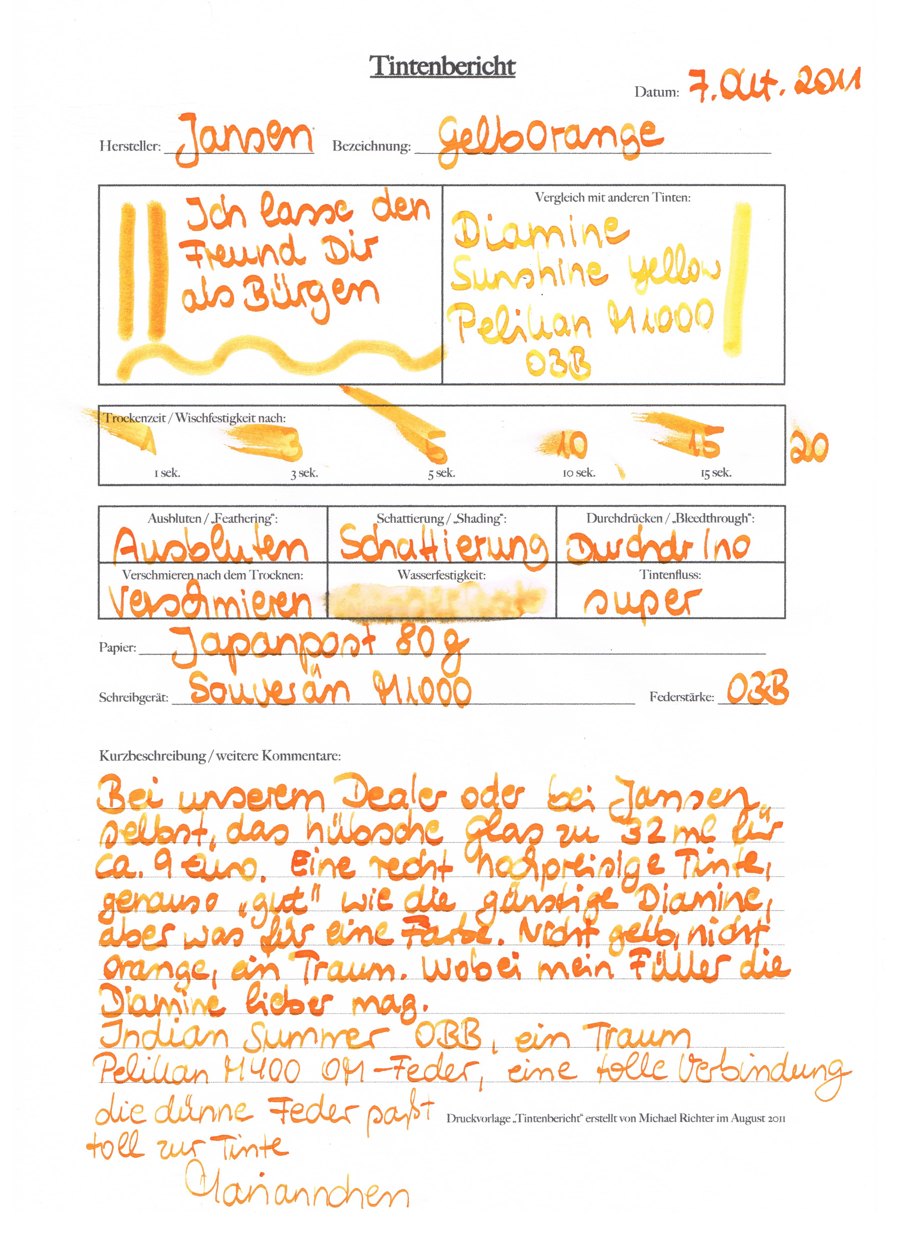 Tintenbericht
Datum: 7. Okt. 2011
Hersteller: Jansen Bezeichnung: GelbOrange
Ich lasse den
Freund Dir
als Bürgen
Vergleich mit anderen Tinten:
Diamine
Sunshine yellow
Pelikan M1000
O3B
Trockenzeit / Wischfestigkeit nach:
1 3 5 10 15 20
1 sek. 3 sek. 5 sek. 10 sek. 15 sek.
Ausbluten / „Feathering“: Schattierung / „Shading“: Durchdrücken / „Bleedthrough“:
Ausbluten Schattierung Durchdr/no
Verschmieren nach dem Trocknen: Wasserfestigkeit: Tintenfluss:
Verschmieren super
Papier: Japanpost 80 g
Schreibgerät: Souverän M1000 Federstärke: O3B
Kurzbeschreibung / weitere Kommentare:
Bei unserem Dealer oder bei Jansen
selbst, das hübsche Glas zu 32 ml für
ca. 9 Euro. Eine recht hochpreisige Tinte,
genauso „gut“ wie die günstige Diamine,
aber was für eine Farbe. Nicht gelb, nicht
orange, ein Traum. Wobei mein Füller die
Diamine lieber mag.
Indian Summer OBB, ein Traum
Pelikan M400 OM-Feder, eine tolle Verbindung
die dünne Feder paßt
Druckvorlage „Tintenbericht“ erstellt von Michael Richter im August 2011
toll zur Tinte
Mariannchen